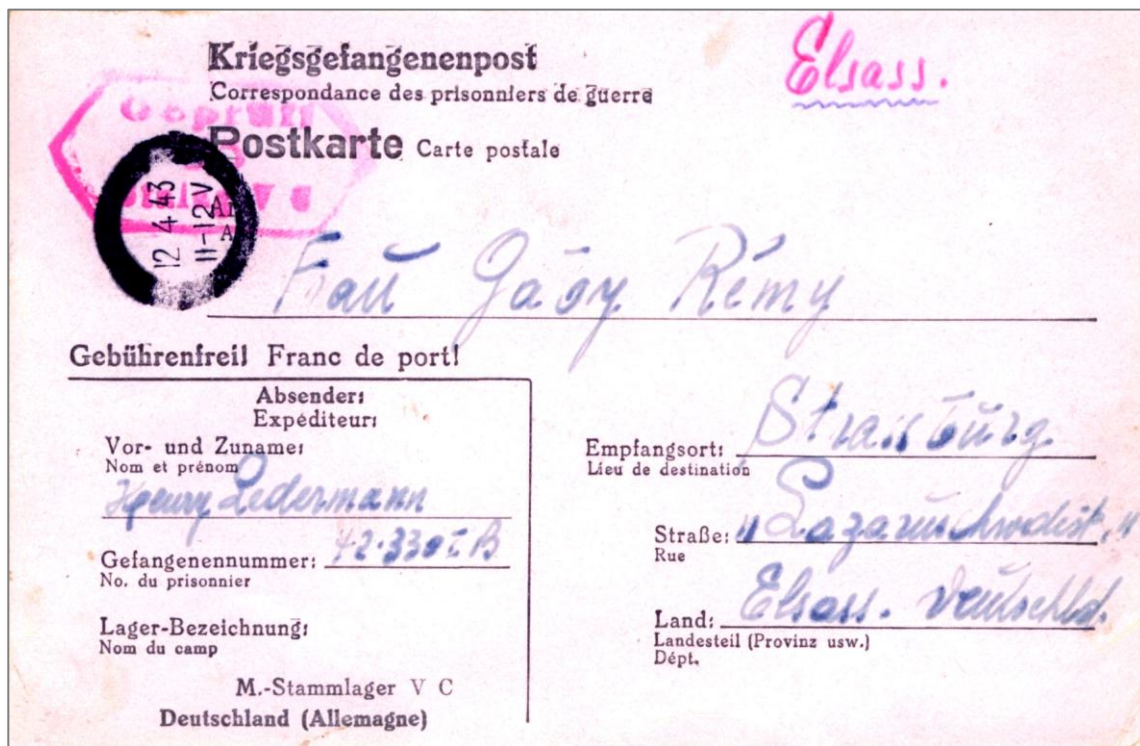 Kriegsgefangenenpost
Elsass.
Correspondance des prisonniers de guerre
Geprüft
Postkarte Carte postale
12 4 43
11-12 V
Frau Rémy
Gebührenfrei! Franc de port!
Absender:
Expéditeur:
Vor- und Zuname:
Nom et prénom
Henry Ledermann
Gefangenennummer:
No. du prisonnier
Lager-Bezeichnung:
Nom du camp
M.-Stammlager V C
Deutschland (Allemagne)
Empfangsort: Strassburg
Lieu de destination
Straße:
Rue
Land: Elsass. Deutschld.
Landesteil (Provinz usw.)
Dépt.